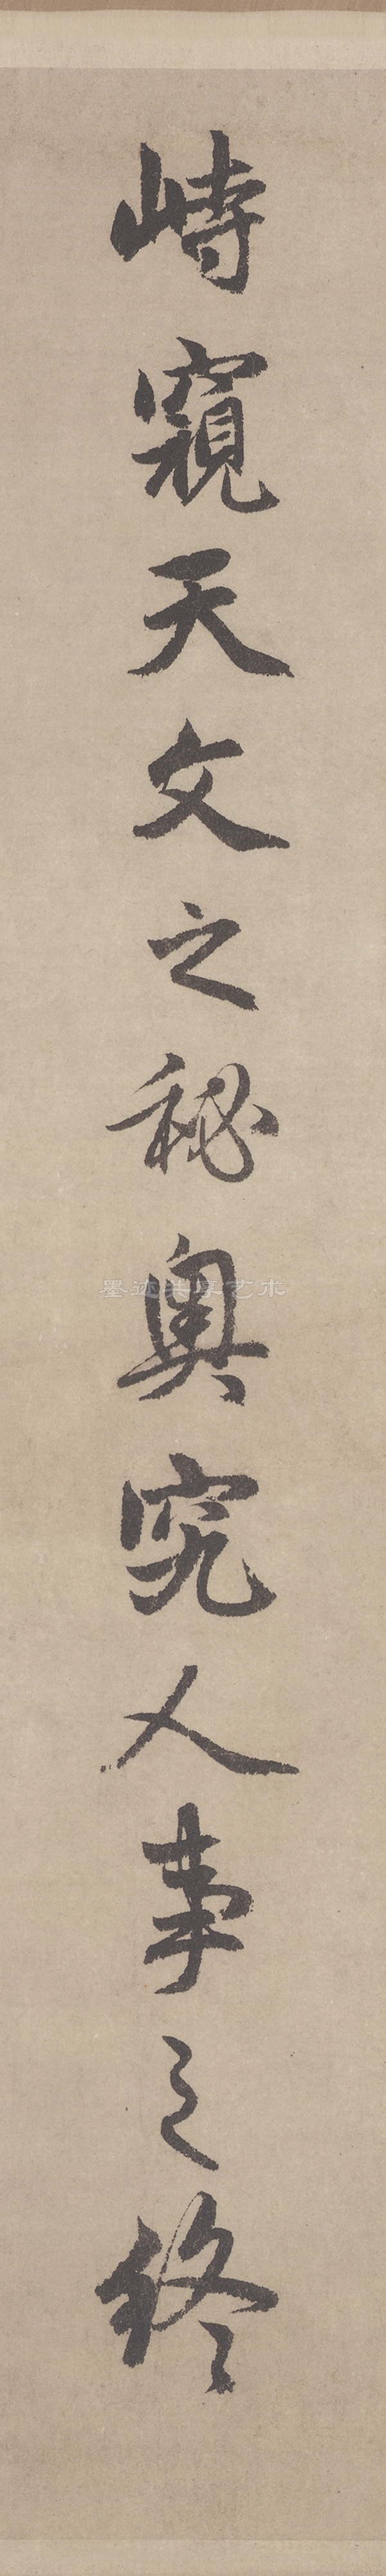 峙窺天文之秘奥究人事之終
墨迹共享艺术